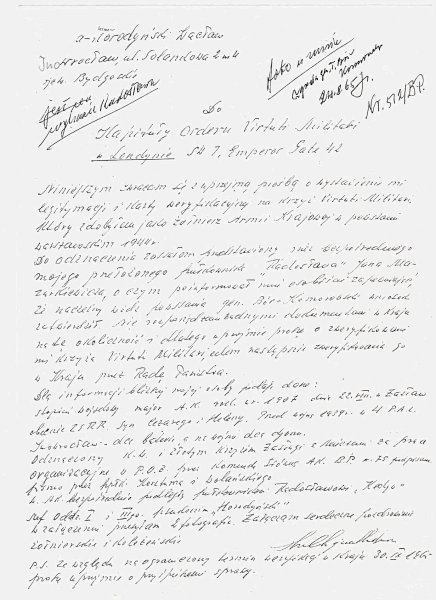 Horodyński Wacław
Inowrocław, ul. Solankowa 2 m 4
pow. Bydgoski
Jest pod
Radosława
Foto u mnie
zgoda gen. T. Bór
Komorowski
24.8.65 r.
NT. 512/BP.
Do
Kapituły Orderu Virtuti Militari
w Londynie SW 7, Emperor Gate 42
Niniejszym zwracam się z uprzejmą prośbą o wystawienie mi
legitymacji i karty weryfikacyjnej na krzyż Virtuti Militari,
który zdobyłem jako żołnierz Armii Krajowej w powstaniu
warszawskim 1944 r.
Do odznaczenia zostałem przedstawiony przez bezpośredniego
mojego przełożonego pułkownika "Radosława" Jana Ma-
zurkiewicza, o czym poinformował mnie osobiście zapewniając
że naczelny wódz powstania gen. Bór-Komorowski wniosek
zatwierdził. Nie rozporządzam żadnymi dokumentami w kraju
na tę okoliczność i dlatego uprzejmie proszę o zweryfikowanie
mi krzyża Virtuti Militari celem następnie zweryfikowania go
w Kraju przez Radę Państwa.
Dla informacji bliższej mojej osoby podaję dane:
stopień wojskowy major A.K. rod. ur. 1907 dnia 22.VII. w Zasław
obecnie ZSRR. Syn Cezarego i Heleny. Przed wojną 1939 r. w 4 P.A.L.
Inowrocław - dca baterii, a na wojnie dca dyonu.
Odznaczony K.W. i złotym Krzyżem Zasługi z Mieczami za pracę
organizacyjną w P.O.Z. przez Komendę Główną AK. BP nr 75 podpisane
W AK bezpośrednio podległy pułkownikowi Radosławowi, "Kedyw"
szef Oddz. I pseudonim "Hondyński"
W załączeniu przesyłam 2 fotografie. Załączam serdeczne pozdrowienia
żołnierskie i koleżeńskie
P.S. Ze względu na ograniczony termin weryfikacji w Kraju 30.IX 1965
proszę uprzejmie o przyśpieszenie sprawy.